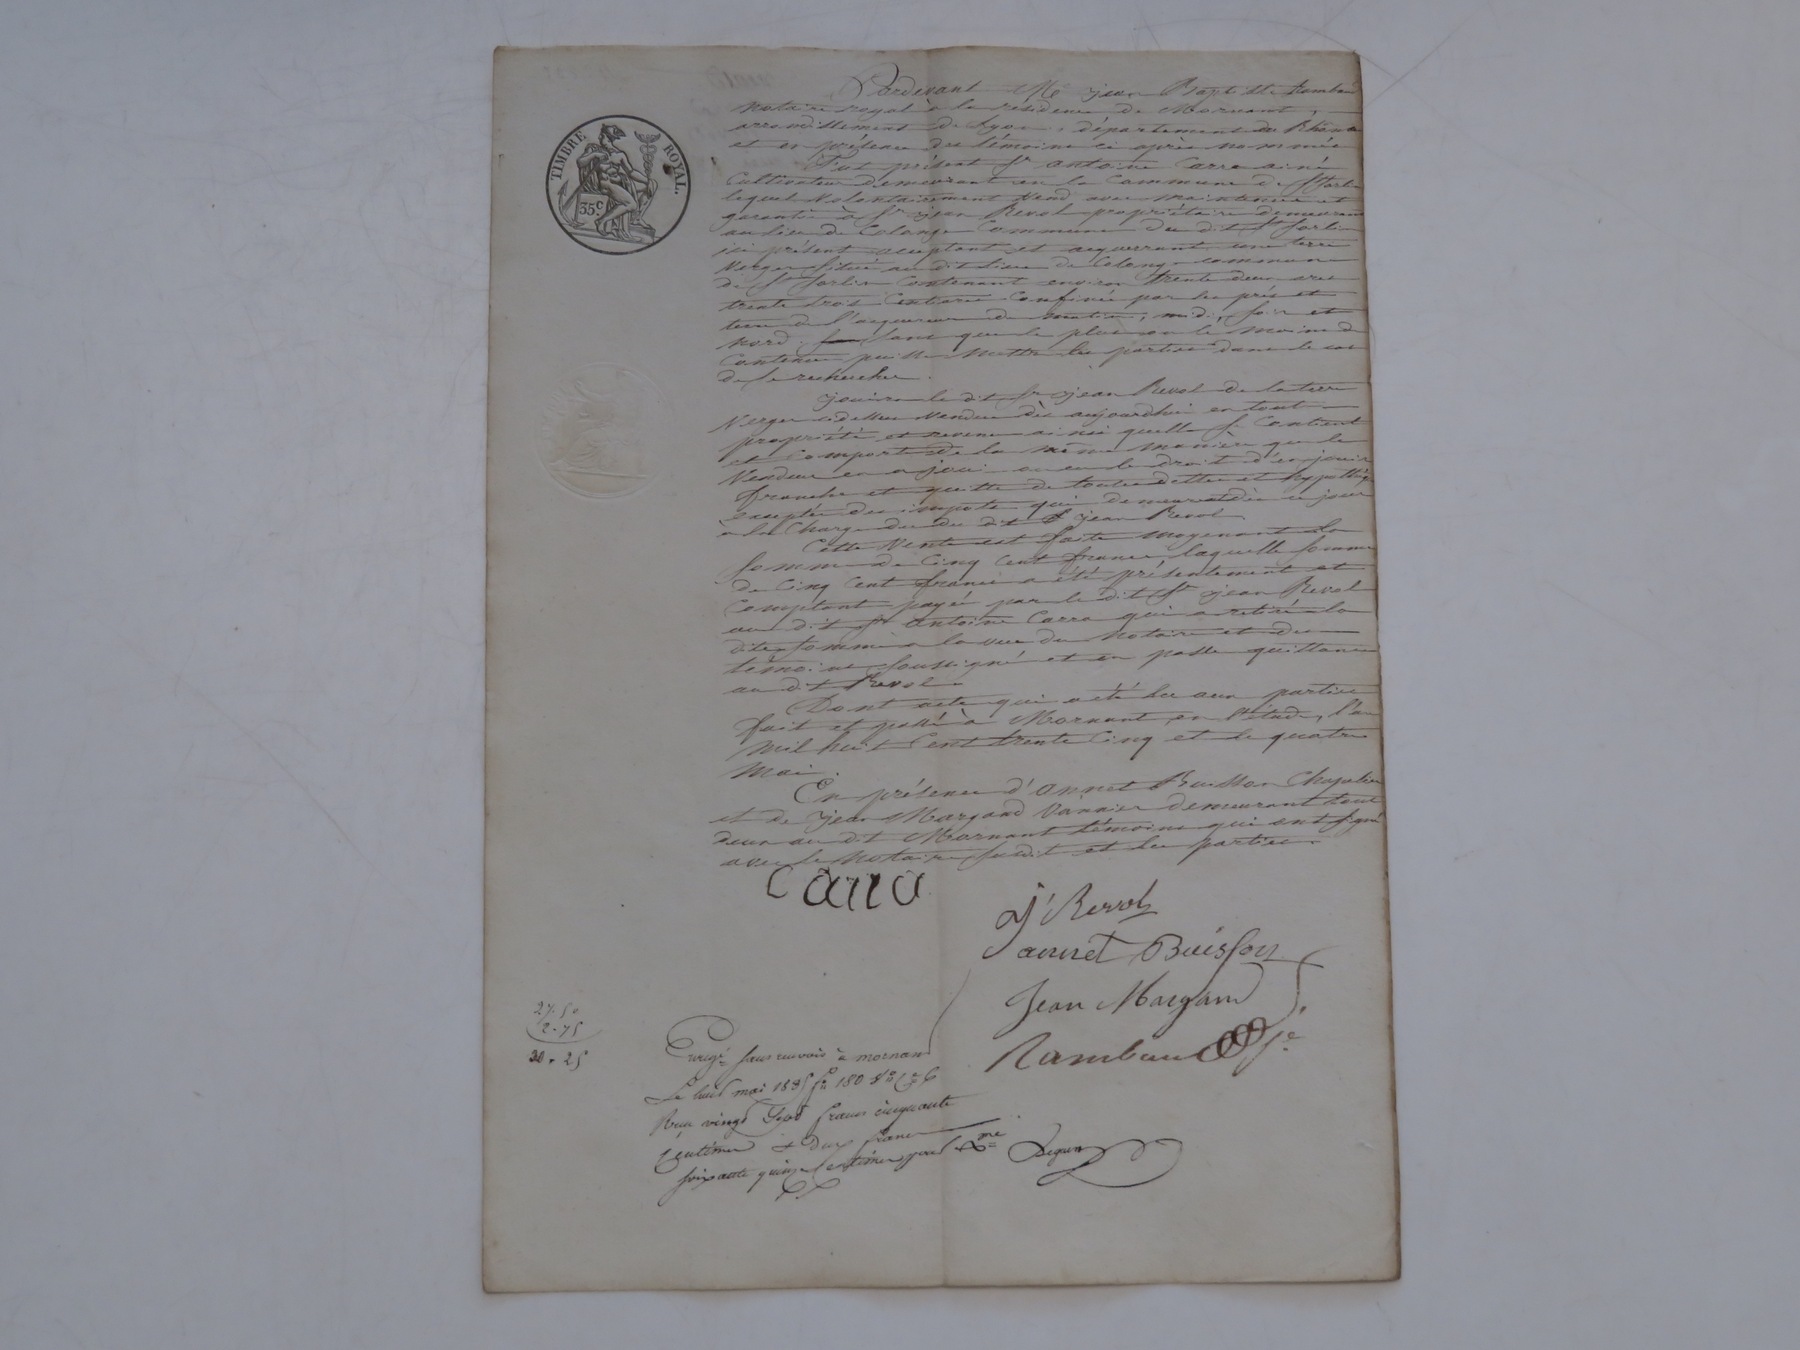 TIMBRE ROYAL.
35c.
Pardevant Me jean Baptiste Rambaud
Notaire royal à la résidence de Mornant,
arrondissement de Lyon, département du Rhône
et en présence des témoins ci après nommés
Fut présent Sr antoine Carra ainé
Cultivateur demeurant en la Commune de St Sorlin
lequel Volontairement Vend avec maintenue et
garantie à Sr jean Revol propriétaire demeurant
au lieu de Colange Commune du dit St Sorlin
ici présent acceptant et acquerrant une terre
Verger située au dit lieu de Colange commune
de St Sorlin Contenant environ trente deux ares
trente trois Centiares Confinée par les prés et
terre de l'acquereur de matin, midi, soir et
Nord. sans que le plus ou le moins de
Contenue puisse mettre les parties dans le cas
de se rechercher.
jouira le dit Sr jean Revol de la terre
Verger cidessus Vendue dès aujourdhui en tout
propriété et revenu ainsi quelle se Contient
et Comporte de la même manière que le
Vendeur en a joui ou eu le droit d'en jouir
franche et quitte de toutes dettes et hypothèq
exceptés des impots qui demeurent dès ce jour
à la Charge du dit Sr jean Revol.
Cette Vente est faite moyenant la
Somme de Cinq Cent francs laquelle Somme
de Cinq Cent francs a été présentement et
Comptant payée par le dit Sr jean Revol
au dit Sr Antoine Carra qui a retiré la
dite Somme à la vue du Notaire et des
témoins soussignés et en passe quittance
au dit Revol.
Dont acte qui a été lu aux parties
fait et passé à Mornant en l'étude, l'an
Mil huit Cent trente Cinq et le quatre
Mai.
En présence d'Annet Buisson Chapelier
et de jean Margand Vannier demeurant tout
deux au dit Mornant témoins qui ont signé
avec le Notaire susdit et les parties.
Cara
J Revol
annet Buisson
Jean Margand
Rambaud
27.50
2.75
30.25
Enregé sans renvois à mornant
Le huit mai 1835 fo 180 Vo Ce 6
Reçu vingt Sept francs cinquante
Centimes et deux francs
soixante quinze centimes pour Xme